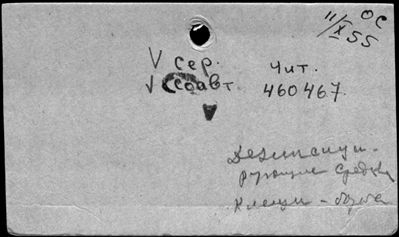 ОС
11/X 55
V сер.
V соавт.
Чит.
460467.
Дезинсици-
рующие средства
Клещи - борьба